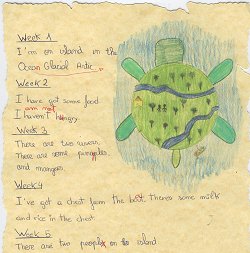 Week 1
I'm on island in the
Ocean Glacial Artic.
Week 2
I have got some food
am not
I haven't hungry
Week 3
There are two rivers.
There are some pineapples
and mangoes.
Week 4
I've got a chest from the boat. Theres some milk
and rice in the chest
Week 5
There are two people on the island